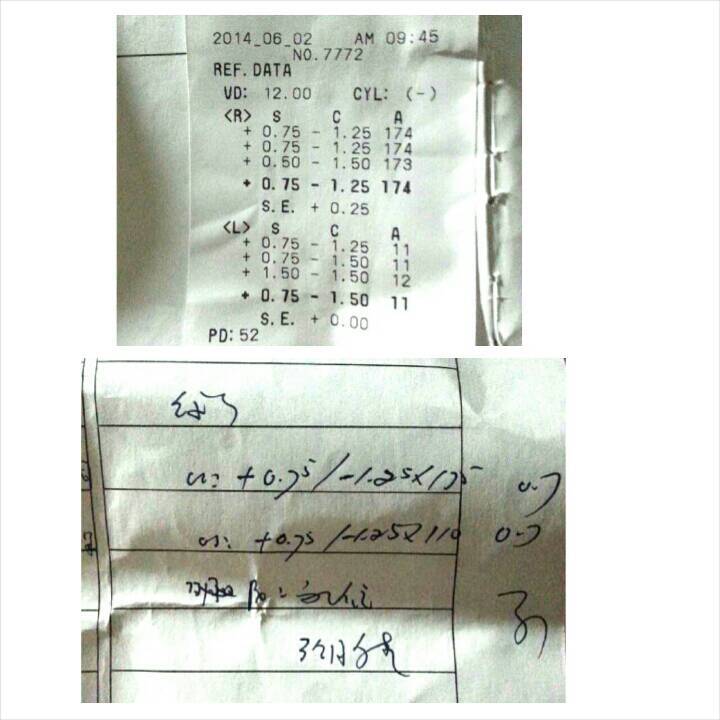 2014_06_02 AM 09:45
NO.7772
REF.DATA
VD: 12.00 CYL: (-)
<R> S C A
+ 0.75 - 1.25 174
+ 0.75 - 1.25 174
+ 0.50 - 1.50 173
+ 0.75 - 1.25 174
S.E. + 0.25
<L> S C A
+ 0.75 - 1.25 11
+ 0.75 - 1.50 11
+ 1.50 - 1.50 12
+ 0.75 - 1.50 11
S.E. + 0.00
PD: 52
+0.75/-1.25×175 0.7
+0.75/-1.25×110 0.7